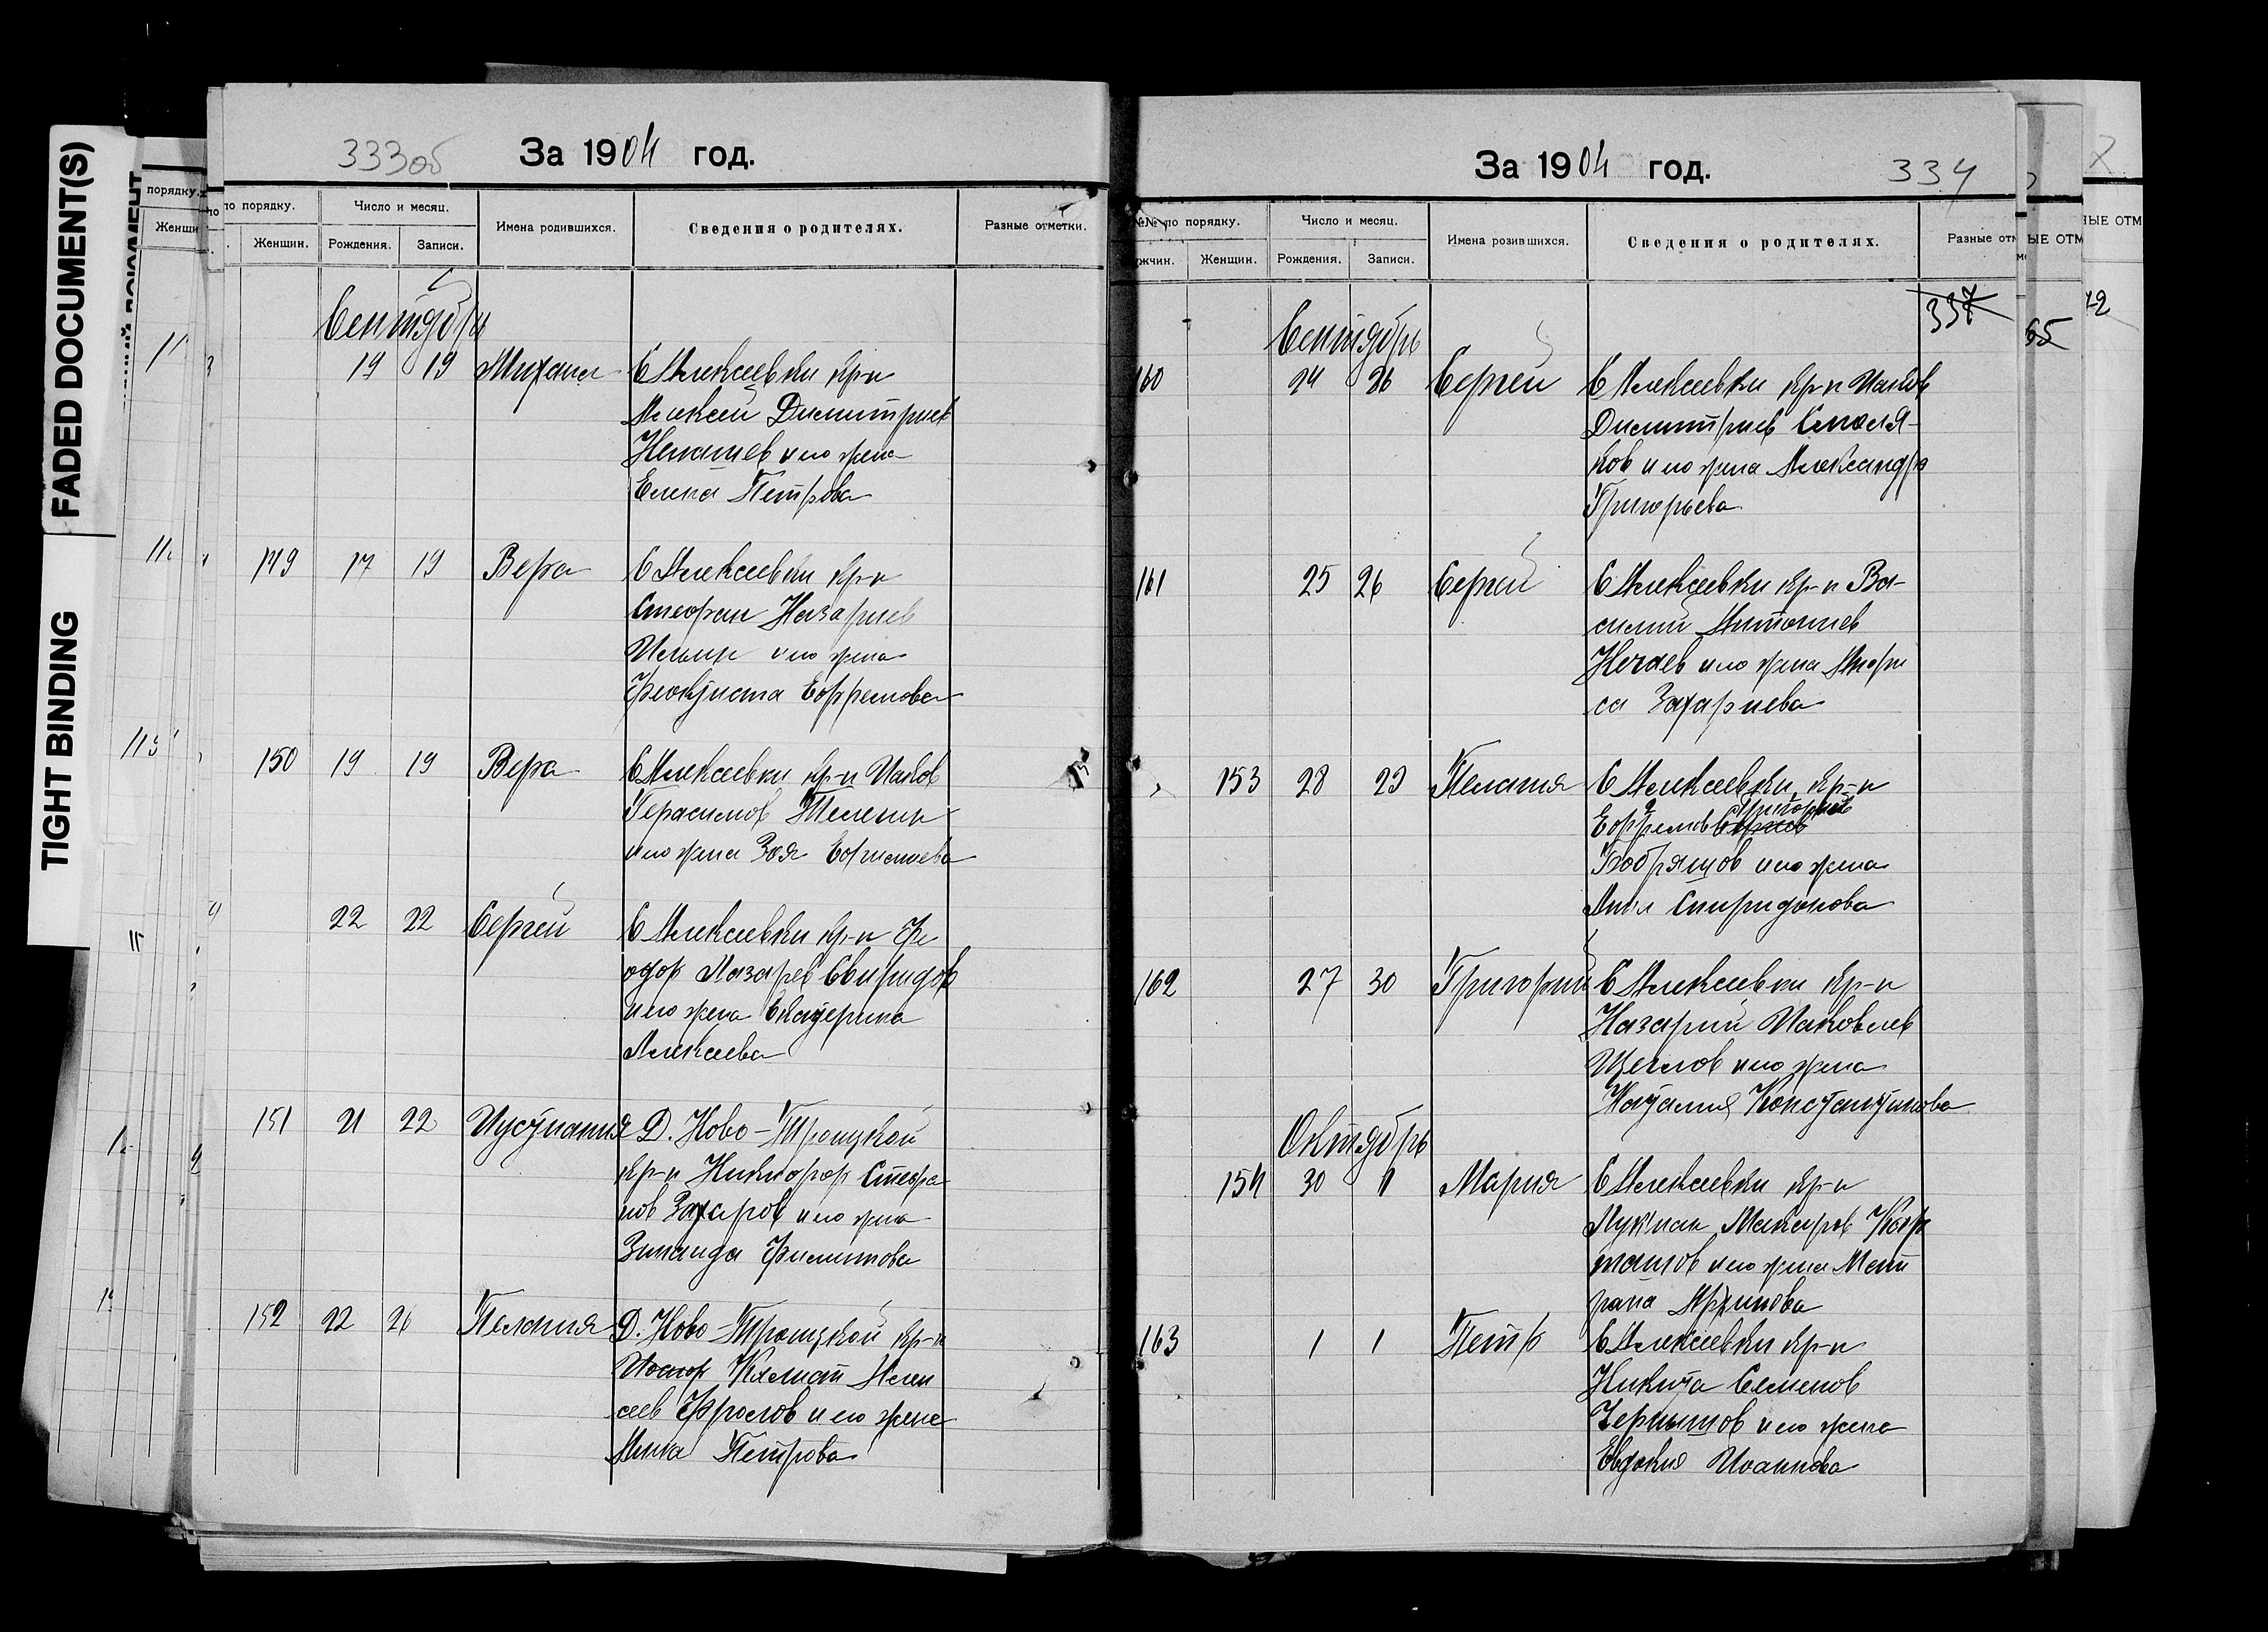 FADED DOCUMENT(S)
TIGHT BINDING
333об
За 1904 год.
по порядку.
Число и месяц.
Имена родившихся.
Сведения о родителях.
Разные отметки.
Женщин.
Рождения.
Записи.
Сентябрь
19 19 Михаил С Алексеевки кр-н
Алексей Димитриев
Ненашев и его жена
Елена Петрова
149 17 19 Вера С Алексеевки кр-н
Стефан Назариев
Ильин и его жена
Феоктиста Ефремова
150 19 19 Вера С Алексеевки кр-н Иаков
Герасимов Телегин
и его жена Зоя
22 22 Сергей С Алексеевки кр-н Фе
одор Лазарев Свиридов
и его жена Екатерина
Алексеева
151 21 22 Иустиания Д. Ново-Троицкой
кр-н Никифор Стефа
нов Захаров и его жена
Зинаида Филиппова
152 22 26 Пелагия Д. Ново-Троицкой кр-н
Иосиф Климент Алек
сеев Фролов и его жена
Анна Петрова
За 1904 год.
334
№№ по порядку.
Число и месяц.
Имена розившихся.
Сведения о родителях.
Разные отм
жчин.
Женщин.
Рождения.
Записи.
337
Сентябрь
160 24 26 Сергей С Алексеевки кр-н Иаков
Димитриев Смоля-
ков и его жена Александра
Григорьева
161 25 26 Сергей С Алексеевки кр-н Ва-
силий Антониев
Нечаев и его жена Анфи
са Захариева
153 28 29 Пелагия С Алексеевки, кр-н
Григорьев
Ефремов
Бобрящов и его жена
Анна Спиридонова
162 27 30 Григорий С Алексеевки кр-н
Назарий Иаковлев
Щеглов и его жена
Наталия Константинова
Октябрь
154 30 1 Мария С Алексеевки кр-н
Лукиан Макаров Кар
ташов и его жена Мат
рона
163 1 1 Петр С Алексеевки кр-н
Никита Семенов
Чернышов и его жена
Евдокия Иоаннова